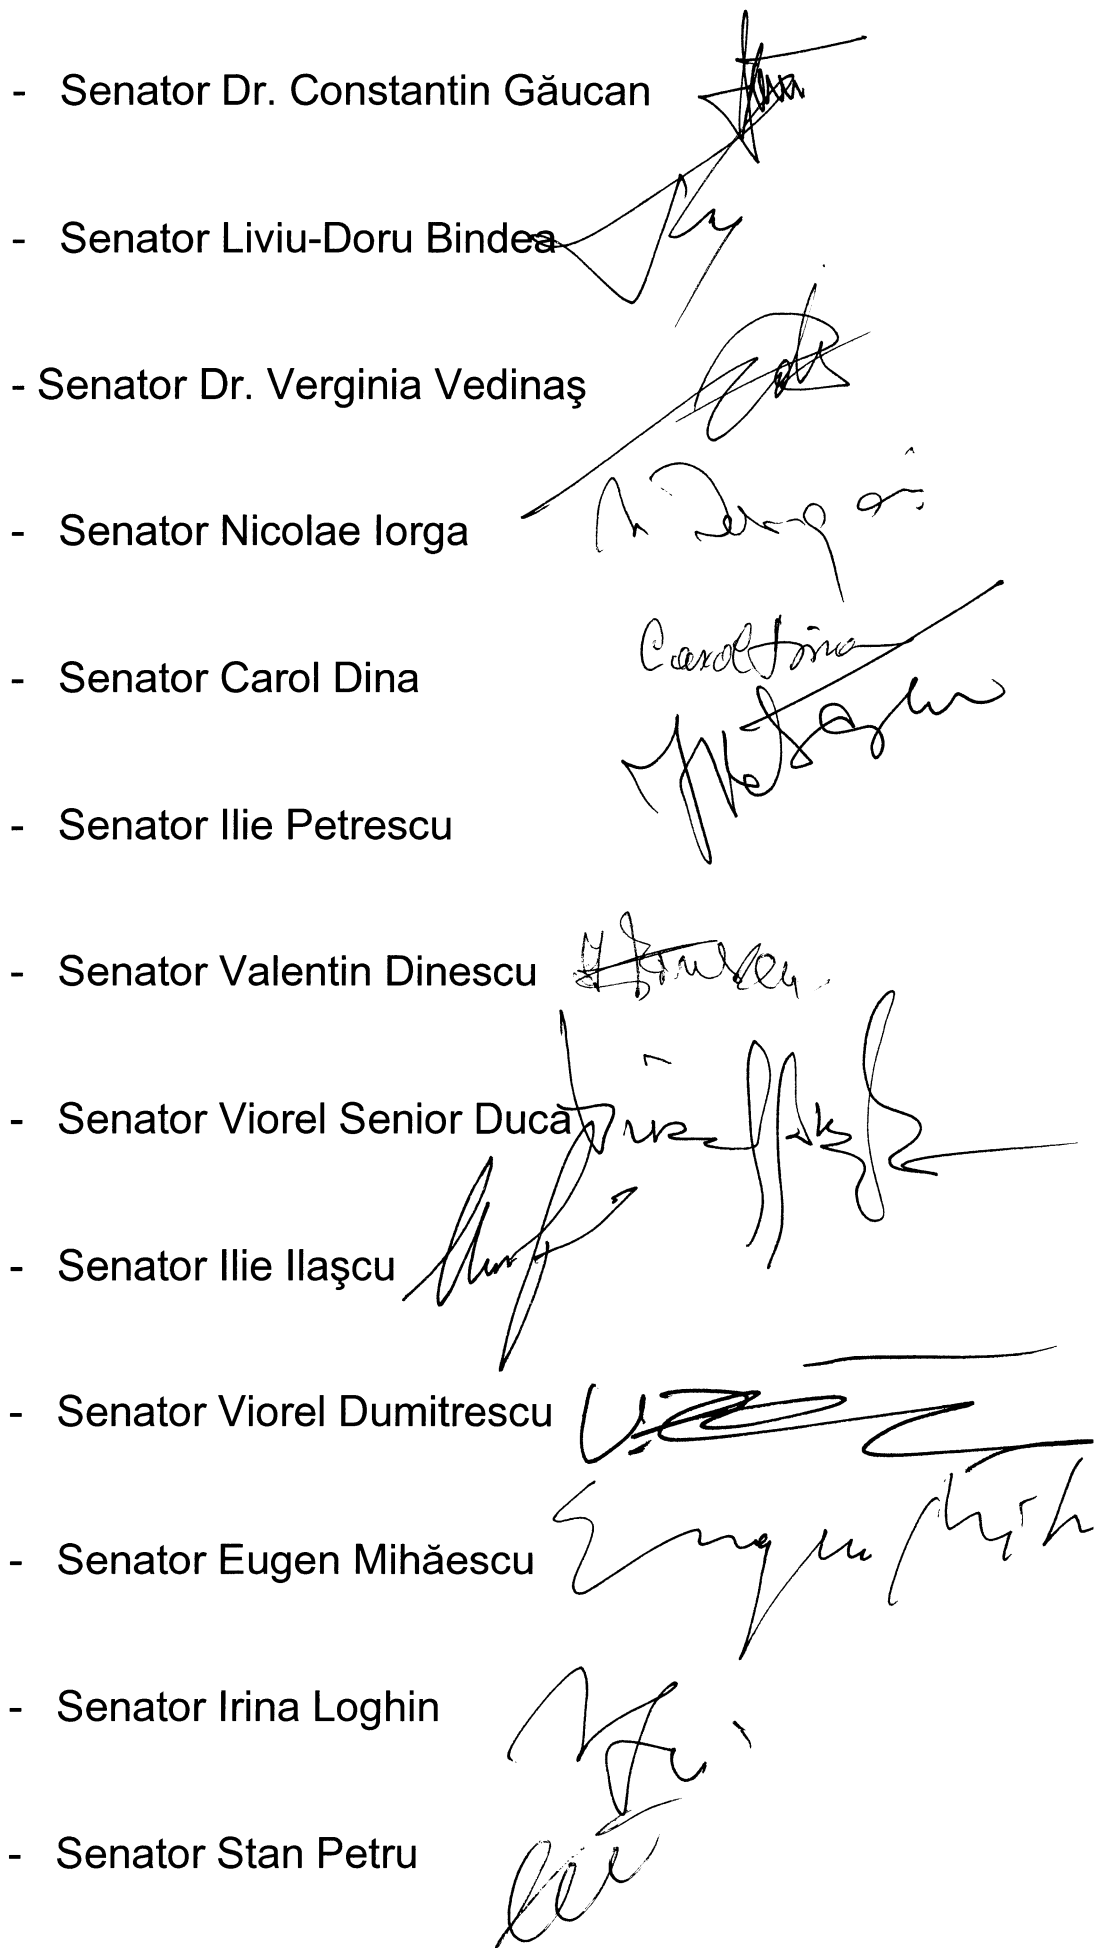 - Senator Dr. Constantin Găucan
- Senator Liviu-Doru Bindea
- Senator Dr. Verginia Vedinaş
- Senator Nicolae Iorga
- Senator Carol Dina
Carol Dina
- Senator Ilie Petrescu
- Senator Valentin Dinescu
- Senator Viorel Senior Ducă
- Senator Ilie Ilaşcu
- Senator Viorel Dumitrescu
- Senator Eugen Mihăescu
Eugen Mih
- Senator Irina Loghin
- Senator Stan Petru